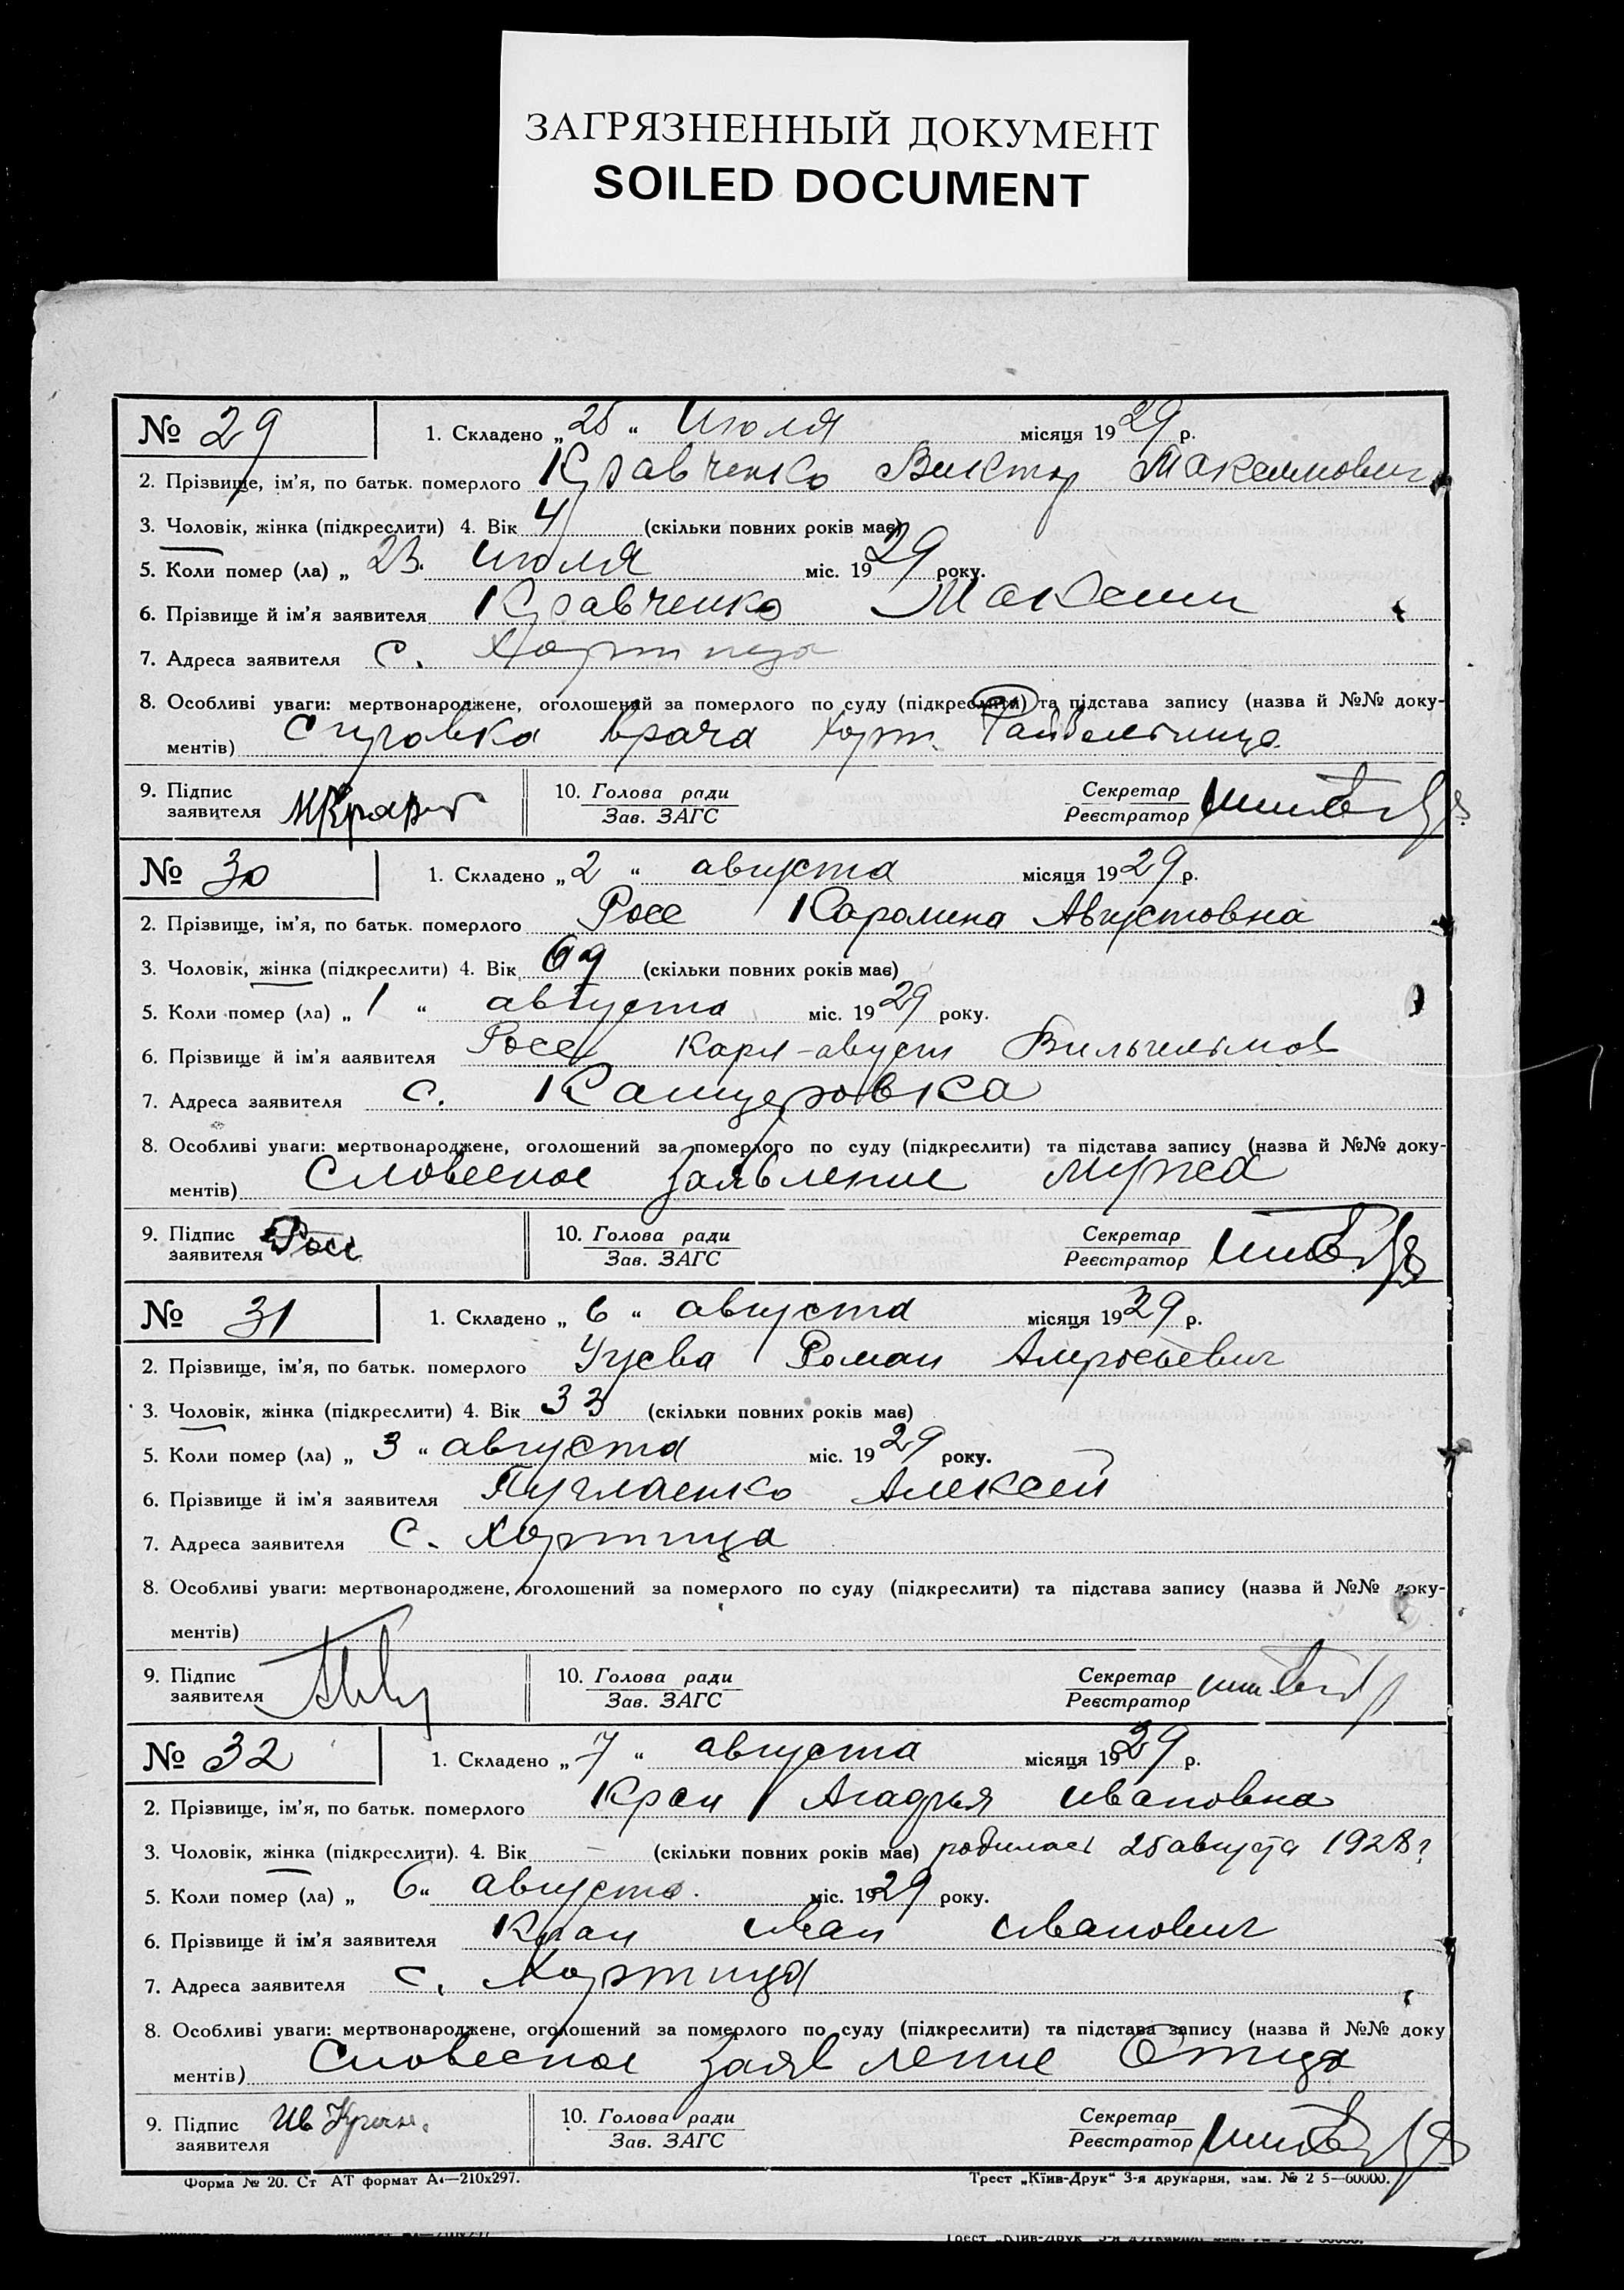 ЗАГРЯЗНЕННЫЙ ДОКУМЕНТ
SOILED DOCUMENT
№ 29 1. Складено „ 25 “ Июля місяця 1929 р.
2. Прізвище, ім'я, по батьк. померлого Кравченко Виктор Максимович
3. Чоловік, жінка (підкреслити) 4. Вік 4 (скільки повних років має)
5. Коли помер (ла) „ 23. июля міс. 1929 року.
6. Прізвище й ім'я заявителя Кравченко Максим
7. Адреса заявителя с. Хортица
8. Особливі уваги: мертвонароджене, оголошений за померлого по суду (підкреслити) та підстава запису (назва й №№ доку-
ментів) Справка врача Хорт. Райбольницы
9. Підпис заявителя МКравч
10. Голова ради
Зав. ЗАГС
Секретар
Реєстратор
№ 30 1. Складено „ 2 “ августа місяця 1929 р.
2. Прізвище, ім'я, по батьк. померлого Росс Каролина Августовна
3. Чоловік, жінка (підкреслити) 4. Вік 69 (скільки повних років має)
5. Коли помер (ла) „ 1 “ августа міс. 1929 року.
6. Прізвище й ім'я заявителя Росс Карл-август Вильгельмов
7. Адреса заявителя с. Канцеровка
8. Особливі уваги: мертвонароджене, оголошений за померлого по суду (підкреслити) та підстава запису (назва й №№ доку-
ментів) Словесное заявление мужа
9. Підпис заявителя Росс
10. Голова ради
Зав. ЗАГС
Секретар
Реєстратор
№ 31 1. Складено „ 6 “ августа місяця 1929 р.
2. Прізвище, ім'я, по батьк. померлого Роман
3. Чоловік, жінка (підкреслити) 4. Вік 33 (скільки повних років має)
5. Коли помер (ла) „ 3 “ августа міс. 1929 року.
6. Прізвище й ім'я заявителя Алексей
7. Адреса заявителя с. Хортица
8. Особливі уваги: мертвонароджене, оголошений за померлого по суду (підкреслити) та підстава запису (назва й №№ доку-
ментів)
9. Підпис заявителя
10. Голова ради
Зав. ЗАГС
Секретар
Реєстратор
№ 32 1. Складено „ 7 “ августа місяця 1929 р.
2. Прізвище, ім'я, по батьк. померлого Кран Ивановна
3. Чоловік, жінка (підкреслити). 4. Вік — (скільки повних років має) родилась 25 августа 1928 г
5. Коли помер (ла) „ 6 “ августа. міс. 1929 року.
6. Прізвище й ім'я заявителя Кран Иван Иванович
7. Адреса заявителя с. Хортица
8. Особливі уваги: мертвонароджене, оголошений за померлого по суду (підкреслити) та підстава запису (назва й №№ доку
ментів) Словесное заявление Отца
9. Підпис заявителя Ив Кран.
10. Голова ради
Зав. ЗАГС
Секретар
Реєстратор
Форма № 20. Ст АТ формат А4—210х297. Трест „Київ-Друк“ 3-я друкарня, зам. № 2 5—60000.